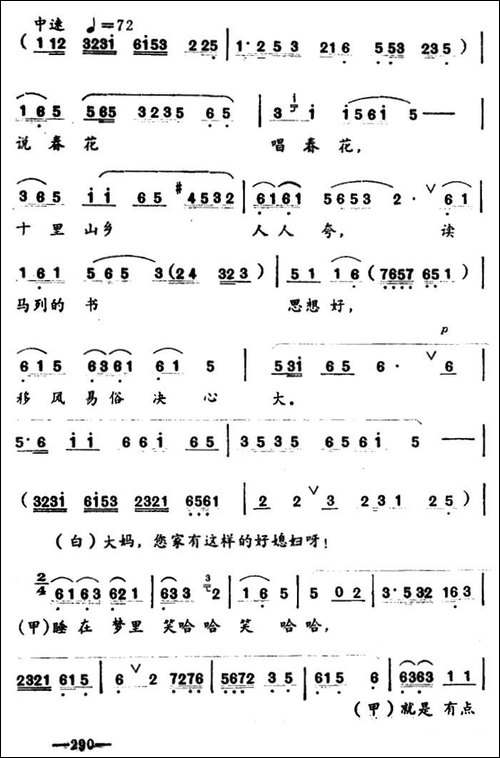 中速 ♩=72
( 1 12 3231 6153 2 25 | 1· 2 5 3 21 6 5 53 23 5 )
1 6 5 5 65 3235 6 5 | 3 i i 5 6 i 5 —
说 春 花 唱 春 花,
3 6 5 i i 6 5 #4532 | 6161 5653 2· ∨ 6 1
十 里 山 乡 人 人 夸, 读
1 6 1 5 6 5 3 (2 4 32 3) | 5 1 1 6 (7657 65 1)
马 列 的 书 思 想 好,
p
6 1 5 6361 6 1 5 | 5 3i 6 5 6· ∨ 6
移 风 易 俗 决 心 大。
5· 6 i i 6 6 i 6 5 | 3 5 3 5 6 5 6 i 5 —
(323i 6i53 2321 6561 | 2 2 ∨ 3 2 3 1 2 5 )
(白) 大妈, 您家有这样的好媳妇呀!
2/4 6163 62 1 | 6 3 3 3 2 | 1 6 5 | 5 0 2 | 3· 532 16 3
(甲) 睡 在 梦 里 笑 哈 哈 笑 哈 哈,
2321 61 5 | 6 ∨ 2 7276 | 5672 3 5 | 61 5 6 | 6363 1 1
(甲) 就 是 有 点
—290—